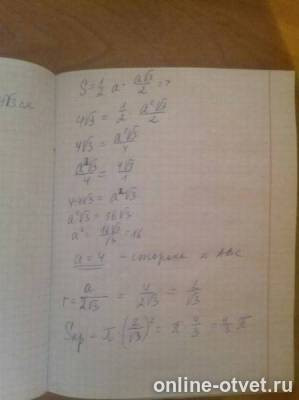 4√3 см
S = 1/2 a · a√3/2 =>
4√3 = 1/2 · a²√3/2
4√3 = a²√3/4
a²√3/4 = 4√3/1
4·4√3 = a²√3
a²√3 = 16√3
a² = 16√3/√3 = 16
a = 4 - сторона
r = a/2√3 = 4/2√3 = 2/√3
Sкр = π · (2/√3)² = π · 4/3 = 4/3 π
online-otvet.ru